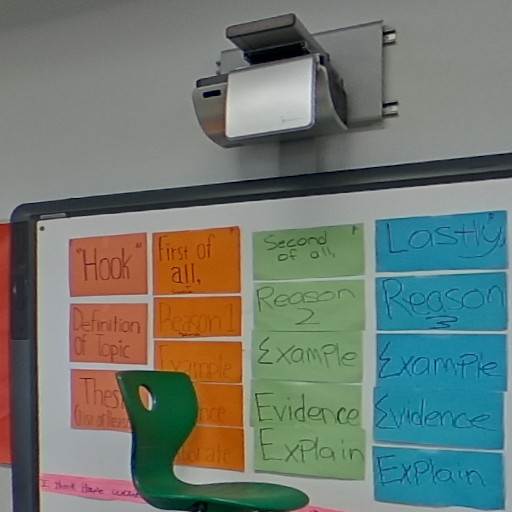 "Hook"
Definition
of Topic
First of
all,
Reason 1
Example
Second
of all,
Reason
2
Example
Evidence
Explain
Lastly,
Reason
3
Example
Evidence
Explain
I think